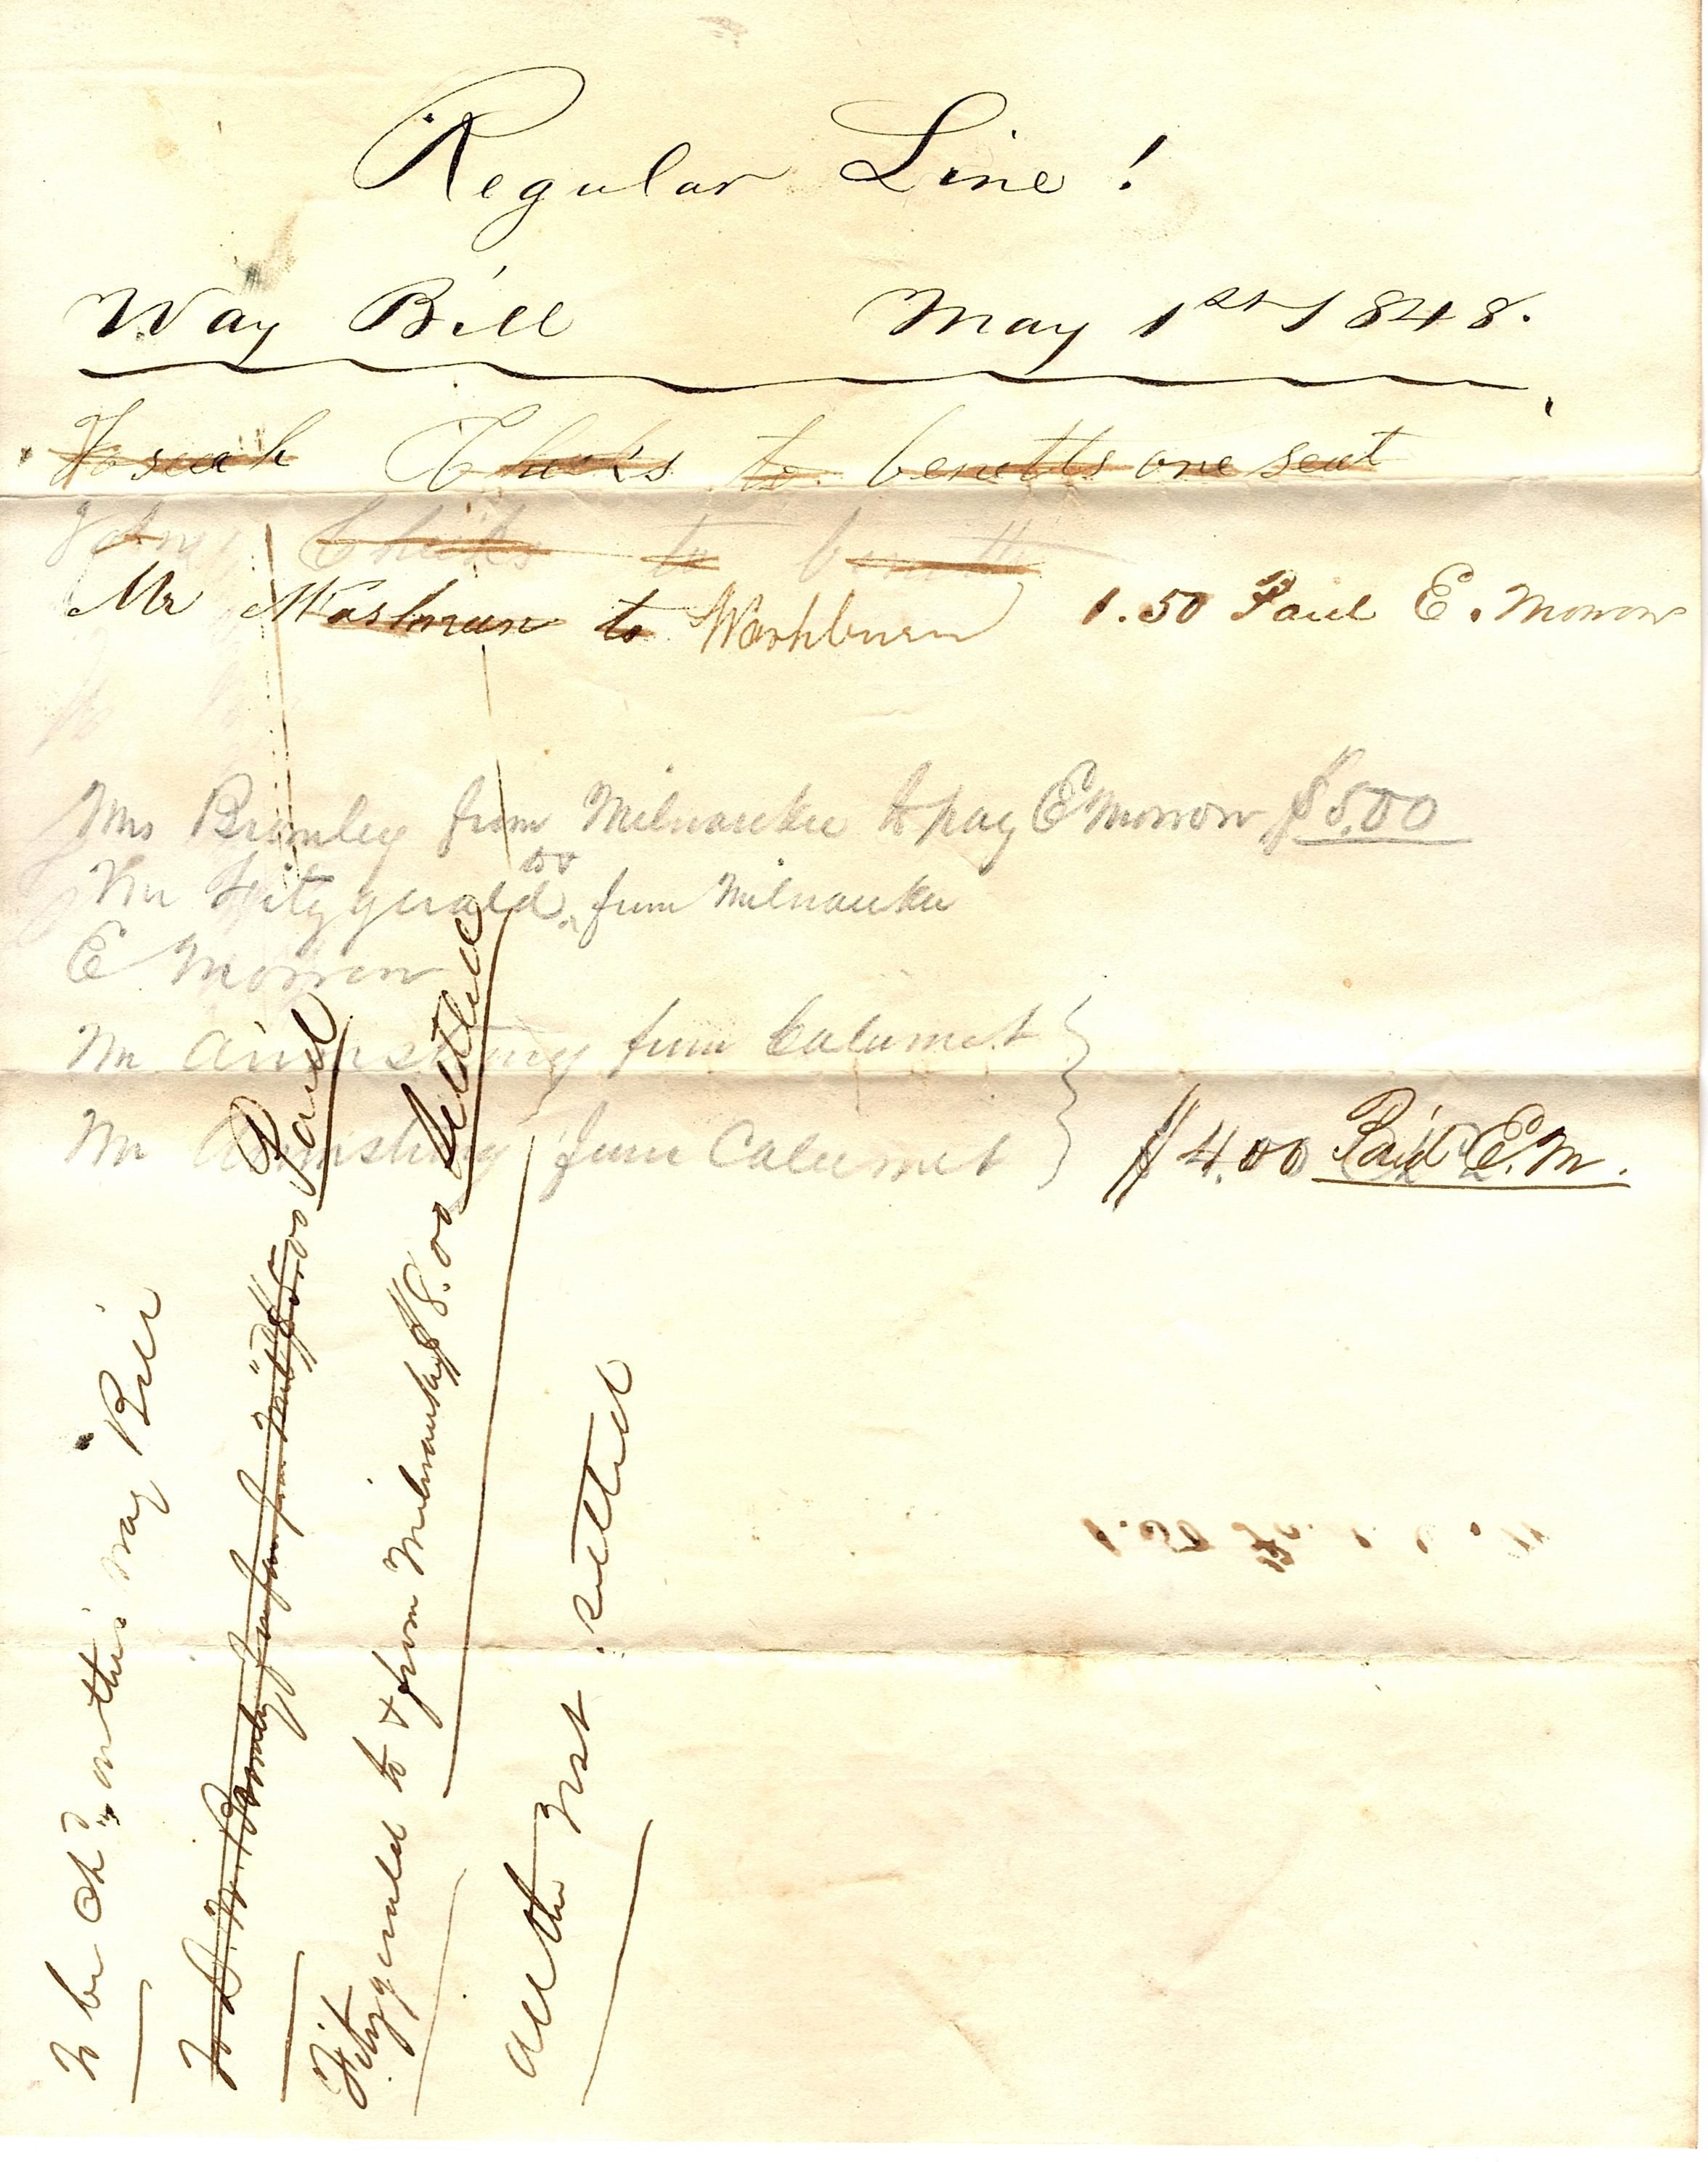 Regular Line!
Way Bill May 1st 1848.
Cheeks to benetts one seat
Cheeks to
Mr to Washburn 1.50 Paid E. Morrow
Mrs Bromley from Milwaukee to pay E Morrow $5.00
Mr Fitzgerald to & from Milwaukee
E Morrow
Mr Armstrong from Calumet
Mr Armstrong from Calumet $4.00 Paid E.M.
To be Chd on this way Bill
Bromley from Paid
Fitzgerald to & from Milwauky $8.00 settled
all the rest settled